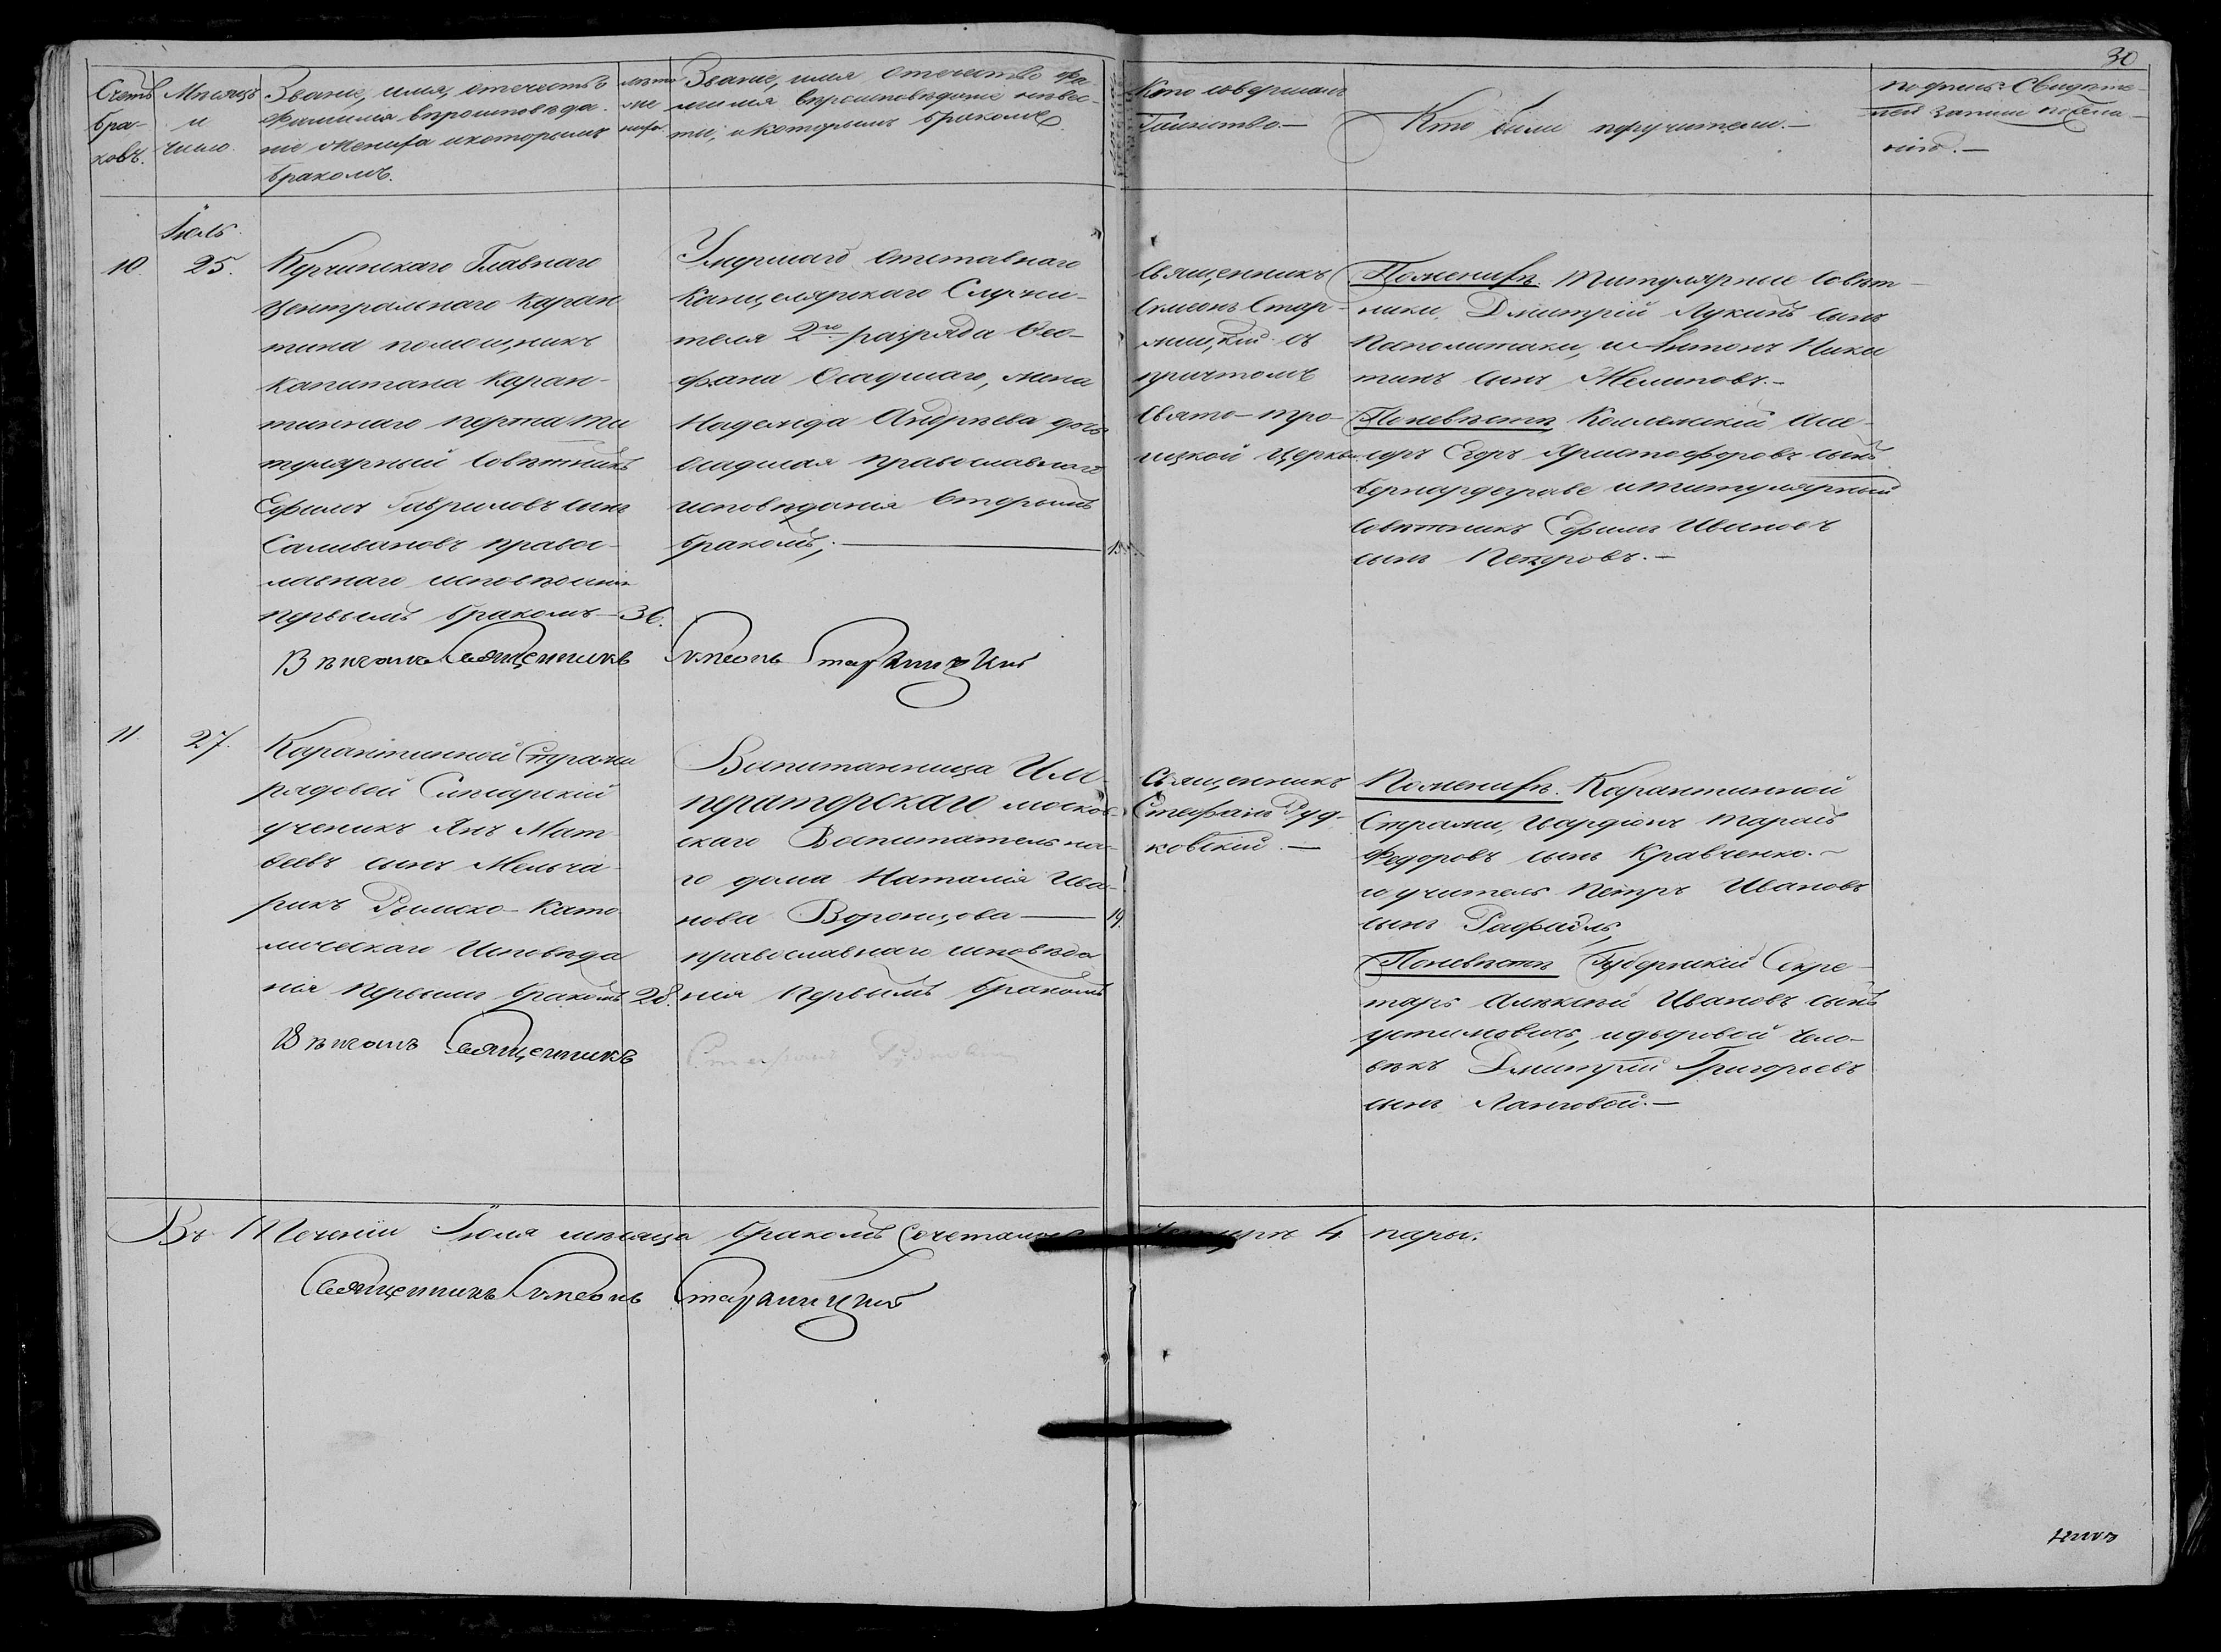 30
Счетъ бра-ковъ.
Мѣсяцъ и число.
Званіе, имя, отечество
фамилія вѣроисповѣда-
ніе жениха и которымъ
бракомъ.
лѣта
же
ниха
Званіе, имя отечество фа-
милія вѣроисповѣданіе невѣс-
ты, и которымъ бракомъ
Кто совершалъ
Таинство.—
Кто были поручители.—
подпись Свидѣте-
лей записи по жела-
нію.—
Іюль.
10.
25.
Керчинскаго Главнаго
Центральнаго Каран
тина помощникъ
Капитана Каран-
тиннаго порта Ти
тулярный Совѣтникъ
Ефимъ Гавриловъ сынъ
Саливановъ правос-
лавнаго исповѣданія
первымъ бракомъ—
36.
Умершаго Отставнаго
Канцелярскаго Служи-
теля 2го разряда Фео-
фана Осадшаго, жена
Надежда Андрѣева дочь
Осадшая православнаго
исповѣданія вторымъ
бракомъ,—
Священникъ
Симеонъ Стар-
жицкій съ
причтомъ
Свято-Тро-
ицкой Церкви
По женихѣ. Титулярные Совѣт-
ники Дмитрій Лукинъ сынъ
Каполитаки, и Антонъ Ники
тинъ сынъ Желиповъ.—
По невѣстѣ Коллежскій Асе-
соръ Егоръ Христофоровъ сынъ
Бернардеграве и титулярный
Совѣтникъ Ефимъ Ивановъ
сынъ Петровъ.—
Вѣнчалъ Священникъ Симеонъ Старжицкій
11.
27.
Карантинной Стражи
рядовой Слесарскій
ученикъ Янъ Мат-
веевъ сынъ Мельча-
рикъ Римско-Като
лическаго Исповѣда
нія первымъ бракомъ
28.
Воспитанница Им-
ператорскаго москов-
скаго Воспитательна-
го дома Наталія Ива-
нова Воронцова—
19.
православнаго исповѣда
нія первымъ бракомъ
Священникъ
Стефанъ Руд-
ковскій.—
По женихѣ. Карантинной
Стражи, Гвардіонъ Тарасъ
Федоровъ сынъ Кравченко.—
и учитель Петръ Ивановъ
сынъ Рафаилъ,
По невѣстѣ Губернскій Секре-
тарь Алѣксей Ивановъ сынъ
Устимовичъ, и дворовой чело-
вѣкъ Дмитрій Григорьевъ
сынъ Ланговой.—
Вѣнчалъ Священникъ Стефанъ
Въ Теченіи Іюля мѣсяца бракомъ Сочеталось Четыре 4 пары.
Священникъ Симеонъ Старжицкій